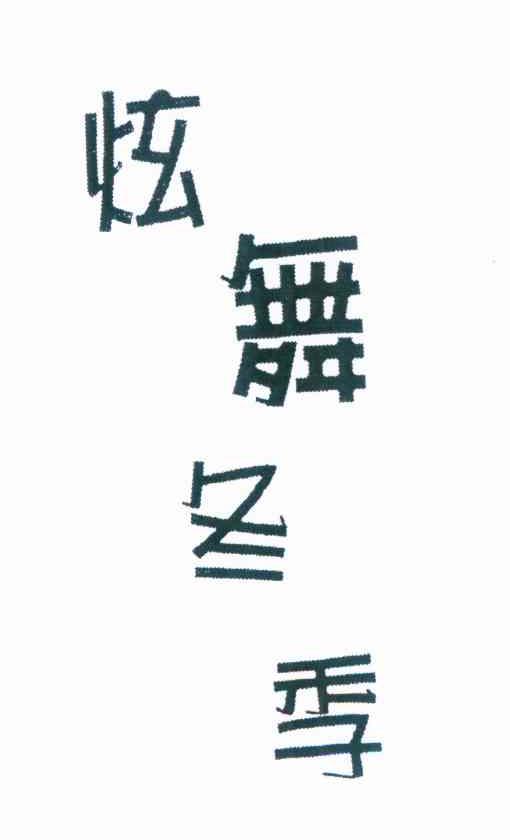 炫舞冬季